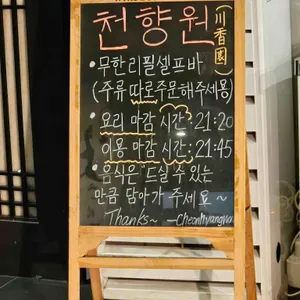 천향원(川香園)
• 무한리필셀프바
(주류 따로주문해주세용)
• 요리 마감 시간 : 21:20
이용 마감 시간 : 21:45
• 음식은 "드실 수 있는
만큼 담아가 주세요~
Thanks~ -Cheonhyangwon